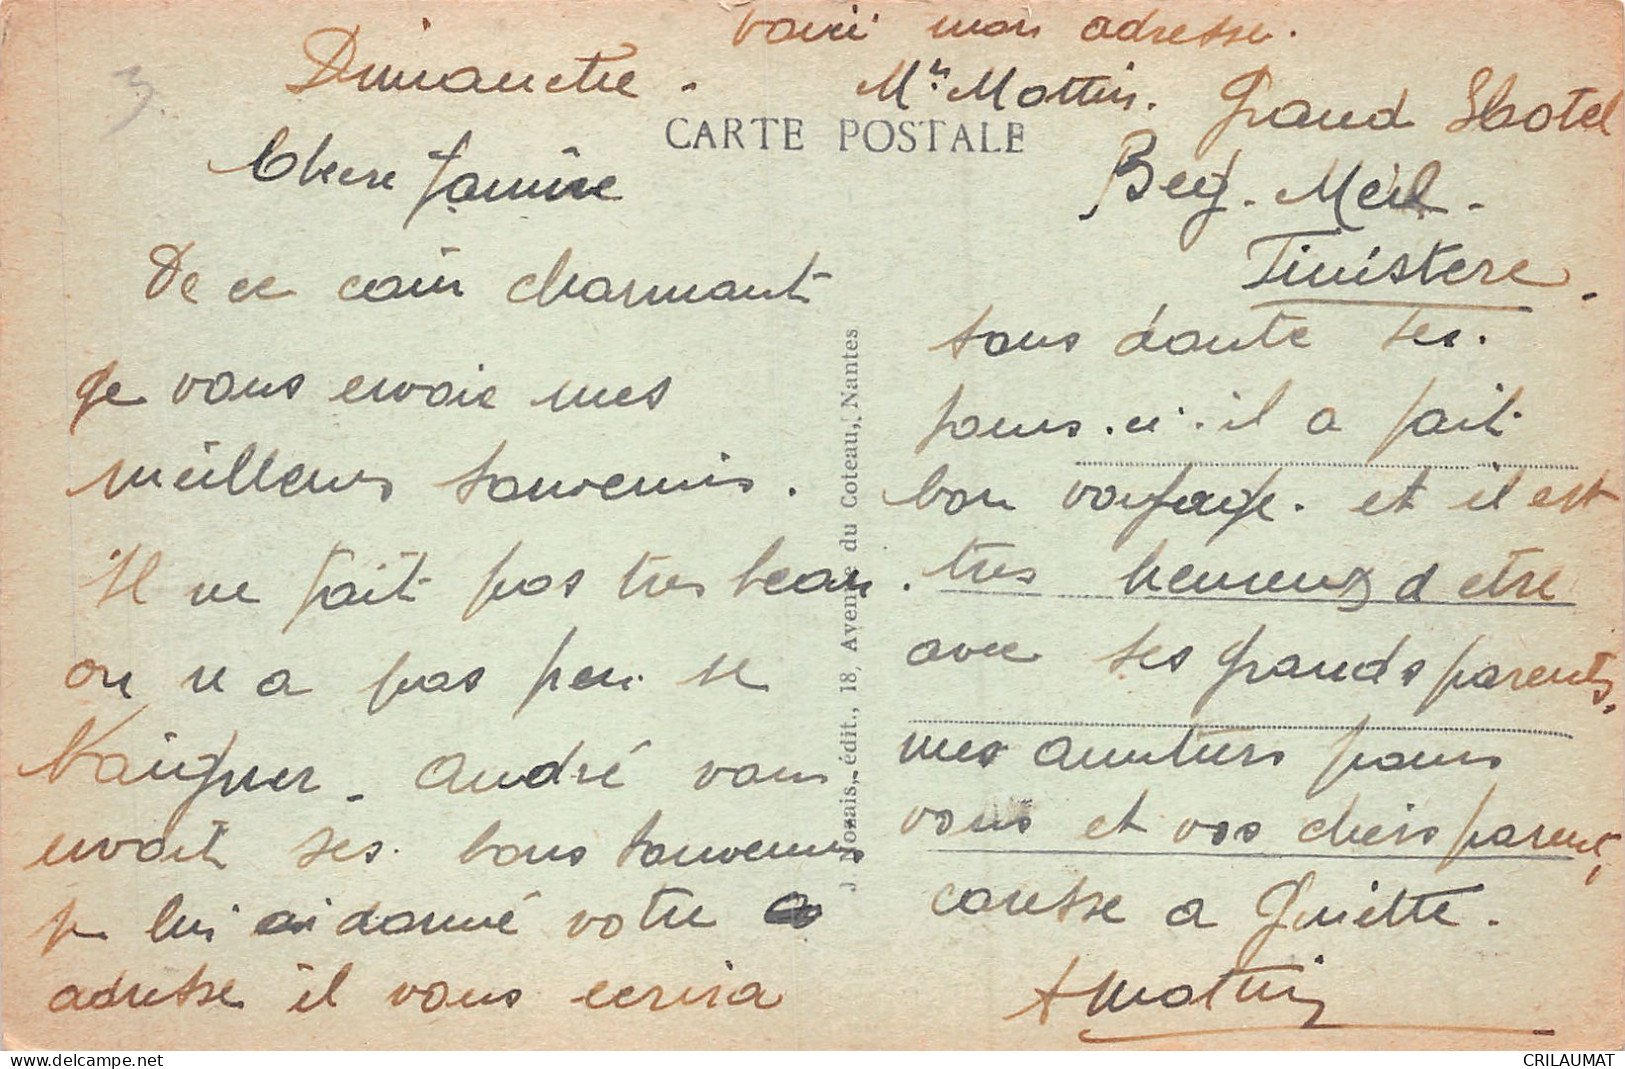 voici mon adresse.
Dimanche -
Mr Mottin. Grand Hotel
CARTE POSTALE
Beg. Meil -
Finistere.
Chere Janine
De ce coin charmant
je vous envoie mes
meilleurs souvenirs.
Il ne fait pas tres beau.
on n a pas peu se
baigner. André vous
envoit ses bons souvenirs
je lui ai donné votre
adresse il vous ecrira
sans doute ses.
jours.ci. il a fait
bon voyage. et il est
tres heureux d etre
avec ses grands parents,
mes amities pour
vous et vos chers parents,
caresse a Guiette.
A Mottin
J. Nozais, édit., 18, Avenue du Coteau, Nantes
3.
CRILAUMAT